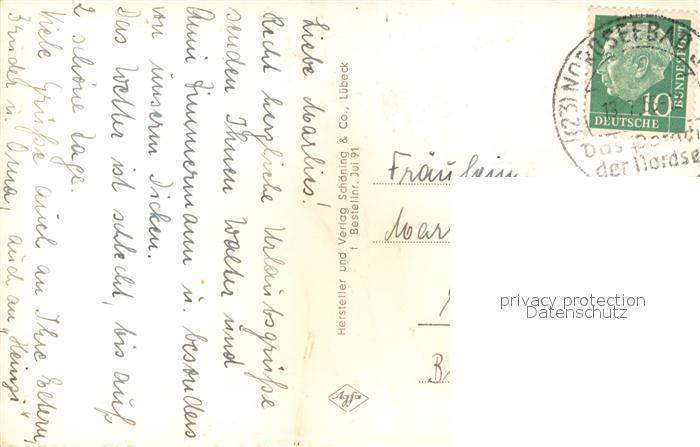 Liebe Marlies!
Recht herzliche Urlaubsgrüße
senden Ihnen Walter und
Anni Zimmermann u. besonders
von unserm Dicken.
Das Wetter ist schlecht, bis auf
2 schöne Tage.
Viele Grüße auch an Ihre Eltern,
Brüder u. Oma, auch an "Heinzi"
Hersteller und Verlag Schöning & Co., Lübeck
Bestellnr. Jui 91
Agfa
(23) NORDSEEBAD
der Nordse
10
DEUTSCHE
BUNDESPOST
Fräulein
Mar
B
privacy protection
Datenschutz